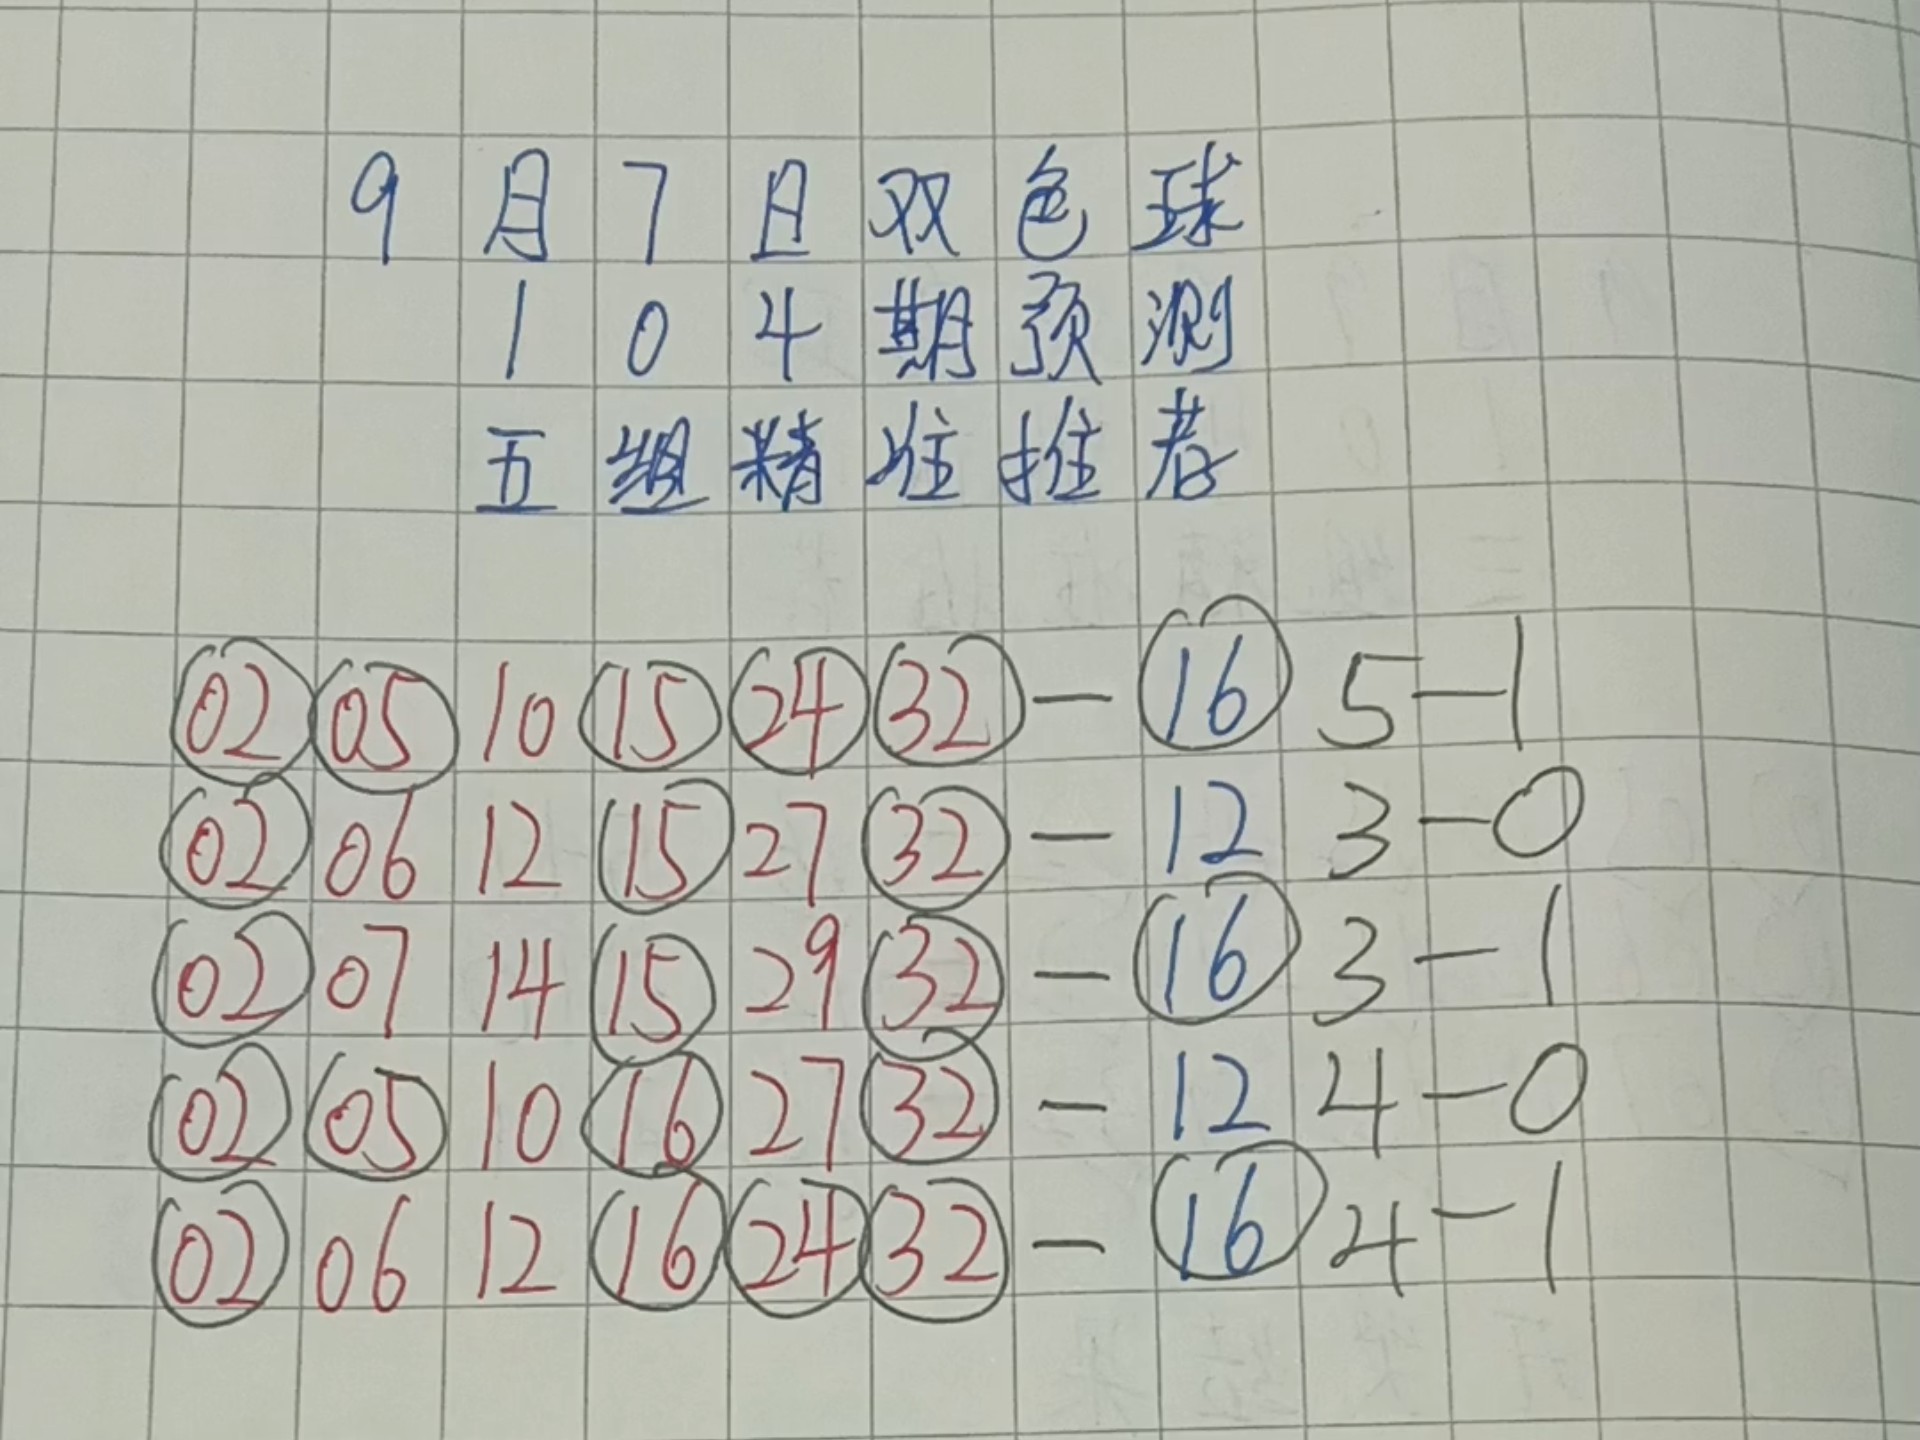 9月7日双色球
104期预测
五组精准推荐
02 05 10 15 24 32 — 16 5—1
02 06 12 15 27 32 — 12 3—0
02 07 14 15 29 32 — 16 3—1
02 05 10 16 27 32 — 12 4—0
02 06 12 16 24 32 — 16 4—1